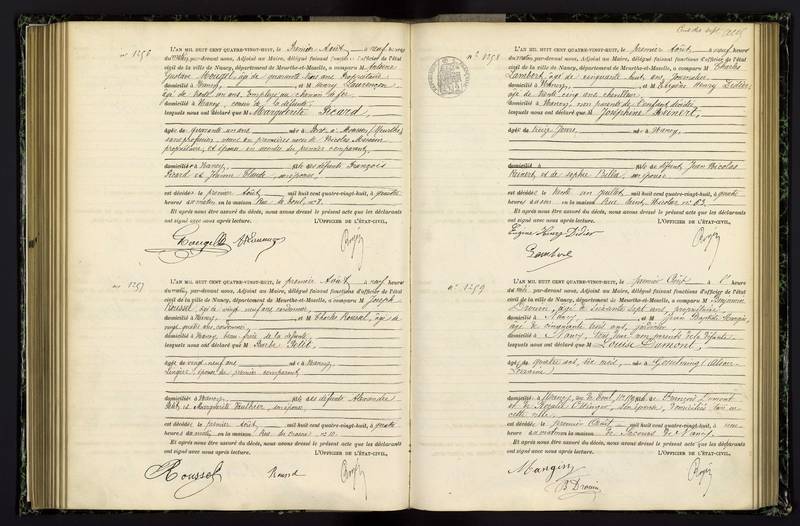 n° 1256
L'AN MIL HUIT CENT QUATRE-VINGT-HUIT, le premier Août, à neuf heures
du matin, par-devant nous, Adjoint au Maire, délégué faisant fonctions d'officier de l'état
civil de la ville de Nancy, département de Meurthe-et-Moselle, a comparu M
Gustave Mougel, âgé de quarante trois ans, Propriétaire
domicilié à Nancy, et M Henry
âgé de trente un ans, Employé au chemin de fer
domicilié à Nancy, cousin de la défunte,
lesquels nous ont déclaré que M Marguerite Picard,
âgée de quarante ans née à Pont à Mousson (Meurthe)
sans profession, veuve en premières noces de Nicolas
propriétaire, et épouse en secondes du premier comparant,
domiciliée à Nancy, fille des défunts François
Picard et Jeanne Claude, son épouse,
est décédée le premier Août, mil huit cent quatre-vingt-huit, à
heures du matin, en la maison Rue n° 7.
Et après nous être assuré du décès, nous avons dressé le présent acte que les déclarants
ont signé avec nous après lecture. L'OFFICIER DE L'ÉTAT-CIVIL,
n° 1257
L'AN MIL HUIT CENT QUATRE-VINGT-HUIT, le premier Août, à neuf heures
du matin, par-devant nous, Adjoint au Maire, délégué faisant fonctions d'officier de l'état
civil de la ville de Nancy, département de Meurthe-et-Moselle, a comparu M Joseph
Roussel, âgé de vingt neuf ans, cordonnier,
domicilié à Nancy, et M Charles Roussel, âgé de
vingt quatre ans, cordonnier,
domicilié à Nancy, beau frère de la défunte,
lesquels nous ont déclaré que M Marie Petit,
âgée de vingt neuf ans née à Nancy,
lingère, épouse du premier comparant,
domiciliée à Nancy, fille des défunts Alexandre
Petit et Marguerite Vauthier, son épouse,
est décédée le premier Août, mil huit cent quatre-vingt-huit, à quatre
heures du matin, en la maison Rue n° 10.
Et après nous être assuré du décès, nous avons dressé le présent acte que les déclarants
ont signé avec nous après lecture. L'OFFICIER DE L'ÉTAT-CIVIL,
Roussel
n° 1258
L'AN MIL HUIT CENT QUATRE-VINGT-HUIT, le premier Août, à neuf heures
du matin, par-devant nous, Adjoint au Maire, délégué faisant fonctions d'officier de l'état
civil de la ville de Nancy, département de Meurthe-et-Moselle, a comparu M Charles
Lambert, âgé de cinquante huit ans, Journalier
domicilié à Nancy, et M Eugène Henry Didier
âgé de trente cinq ans,
domicilié à Nancy, non parents de l'enfant décédée
lesquels nous ont déclaré que M Joséphine Reinert,
âgée de treize jours, née à Nancy,
domiciliée à fille de défunt Jean Nicolas
Reinert, et de Sophie Bella, son épouse
est décédée le trente un juillet, mil huit cent quatre-vingt-huit, à quatre
heures du soir, en la maison Rue Saint Nicolas n° 63.
Et après nous être assuré du décès, nous avons dressé le présent acte que les déclarants
ont signé avec nous après lecture. L'OFFICIER DE L'ÉTAT-CIVIL,
Eugène Henry Didier
n° 1259
L'AN MIL HUIT CENT QUATRE-VINGT-HUIT, le premier Août, à heure
du par-devant nous, Adjoint au Maire, délégué faisant fonctions d'officier de l'état
civil de la ville de Nancy, département de Meurthe-et-Moselle, a comparu M Benjamin
Drouin, âgé de soixante sept ans, propriétaire,
domicilié à Nancy et M Jean Baptiste Mangin,
âgé de cinquante trois ans, jardinier
domicilié à Nancy, tous deux non parents de la défunte
lesquels nous ont déclaré que M Louise Dumont,
âgée de quatre ans, née à (Alsace
Lorraine)
domiciliée à Nancy, fille de François Dumont
et de Rosalie son épouse, domiciliés en
cette ville,
est décédée le premier Août mil huit cent quatre-vingt-huit, à une
heure du matin en la maison de Secours de Nancy.
Et après nous être assuré du décès, nous avons dressé le présent acte que les déclarants
ont signé avec nous après lecture. L'OFFICIER DE L'ÉTAT-CIVIL,
Mangin
B. Drouin